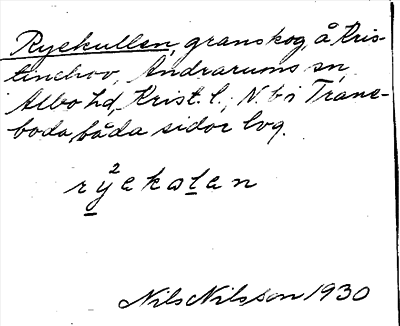 Ryekullen, granskog, å Kris-
tinehov, Andrarums sn,
Albo hd, Krist. l.; N. b i Trane-
boda, båda sidor lvg.
rý²ekolen
Nils Nilsson 1930